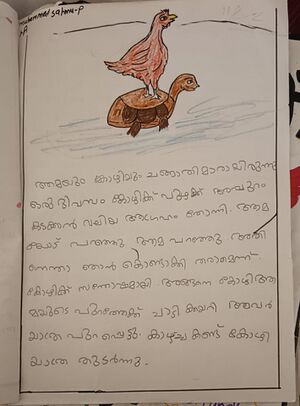 muhammed sahnu-P
ആമയും കോഴിയും ചങ്ങാതിമാരായിരുന്നു
ഒരു ദിവസം കോഴിക്ക് പുഴക്ക് അപ്പുറം
കടക്കാൻ വലിയ ആഗ്രഹം തോന്നി. ആമ
യോട് പറഞ്ഞു ആമ പറഞ്ഞു അതി
നെന്താ ഞാൻ കൊണ്ടാക്കി തരാമെന്ന്
കോഴിക്ക് സന്തോഷമായി. അങ്ങനെ കോഴി ആ
മയുടെ പുറത്തേക്ക് ചാടി കയറി അവർ
യാത്ര പുറപ്പെട്ടു. കാഴ്ച്ച കണ്ട് കോഴി
യാത്ര തുടർന്നു.